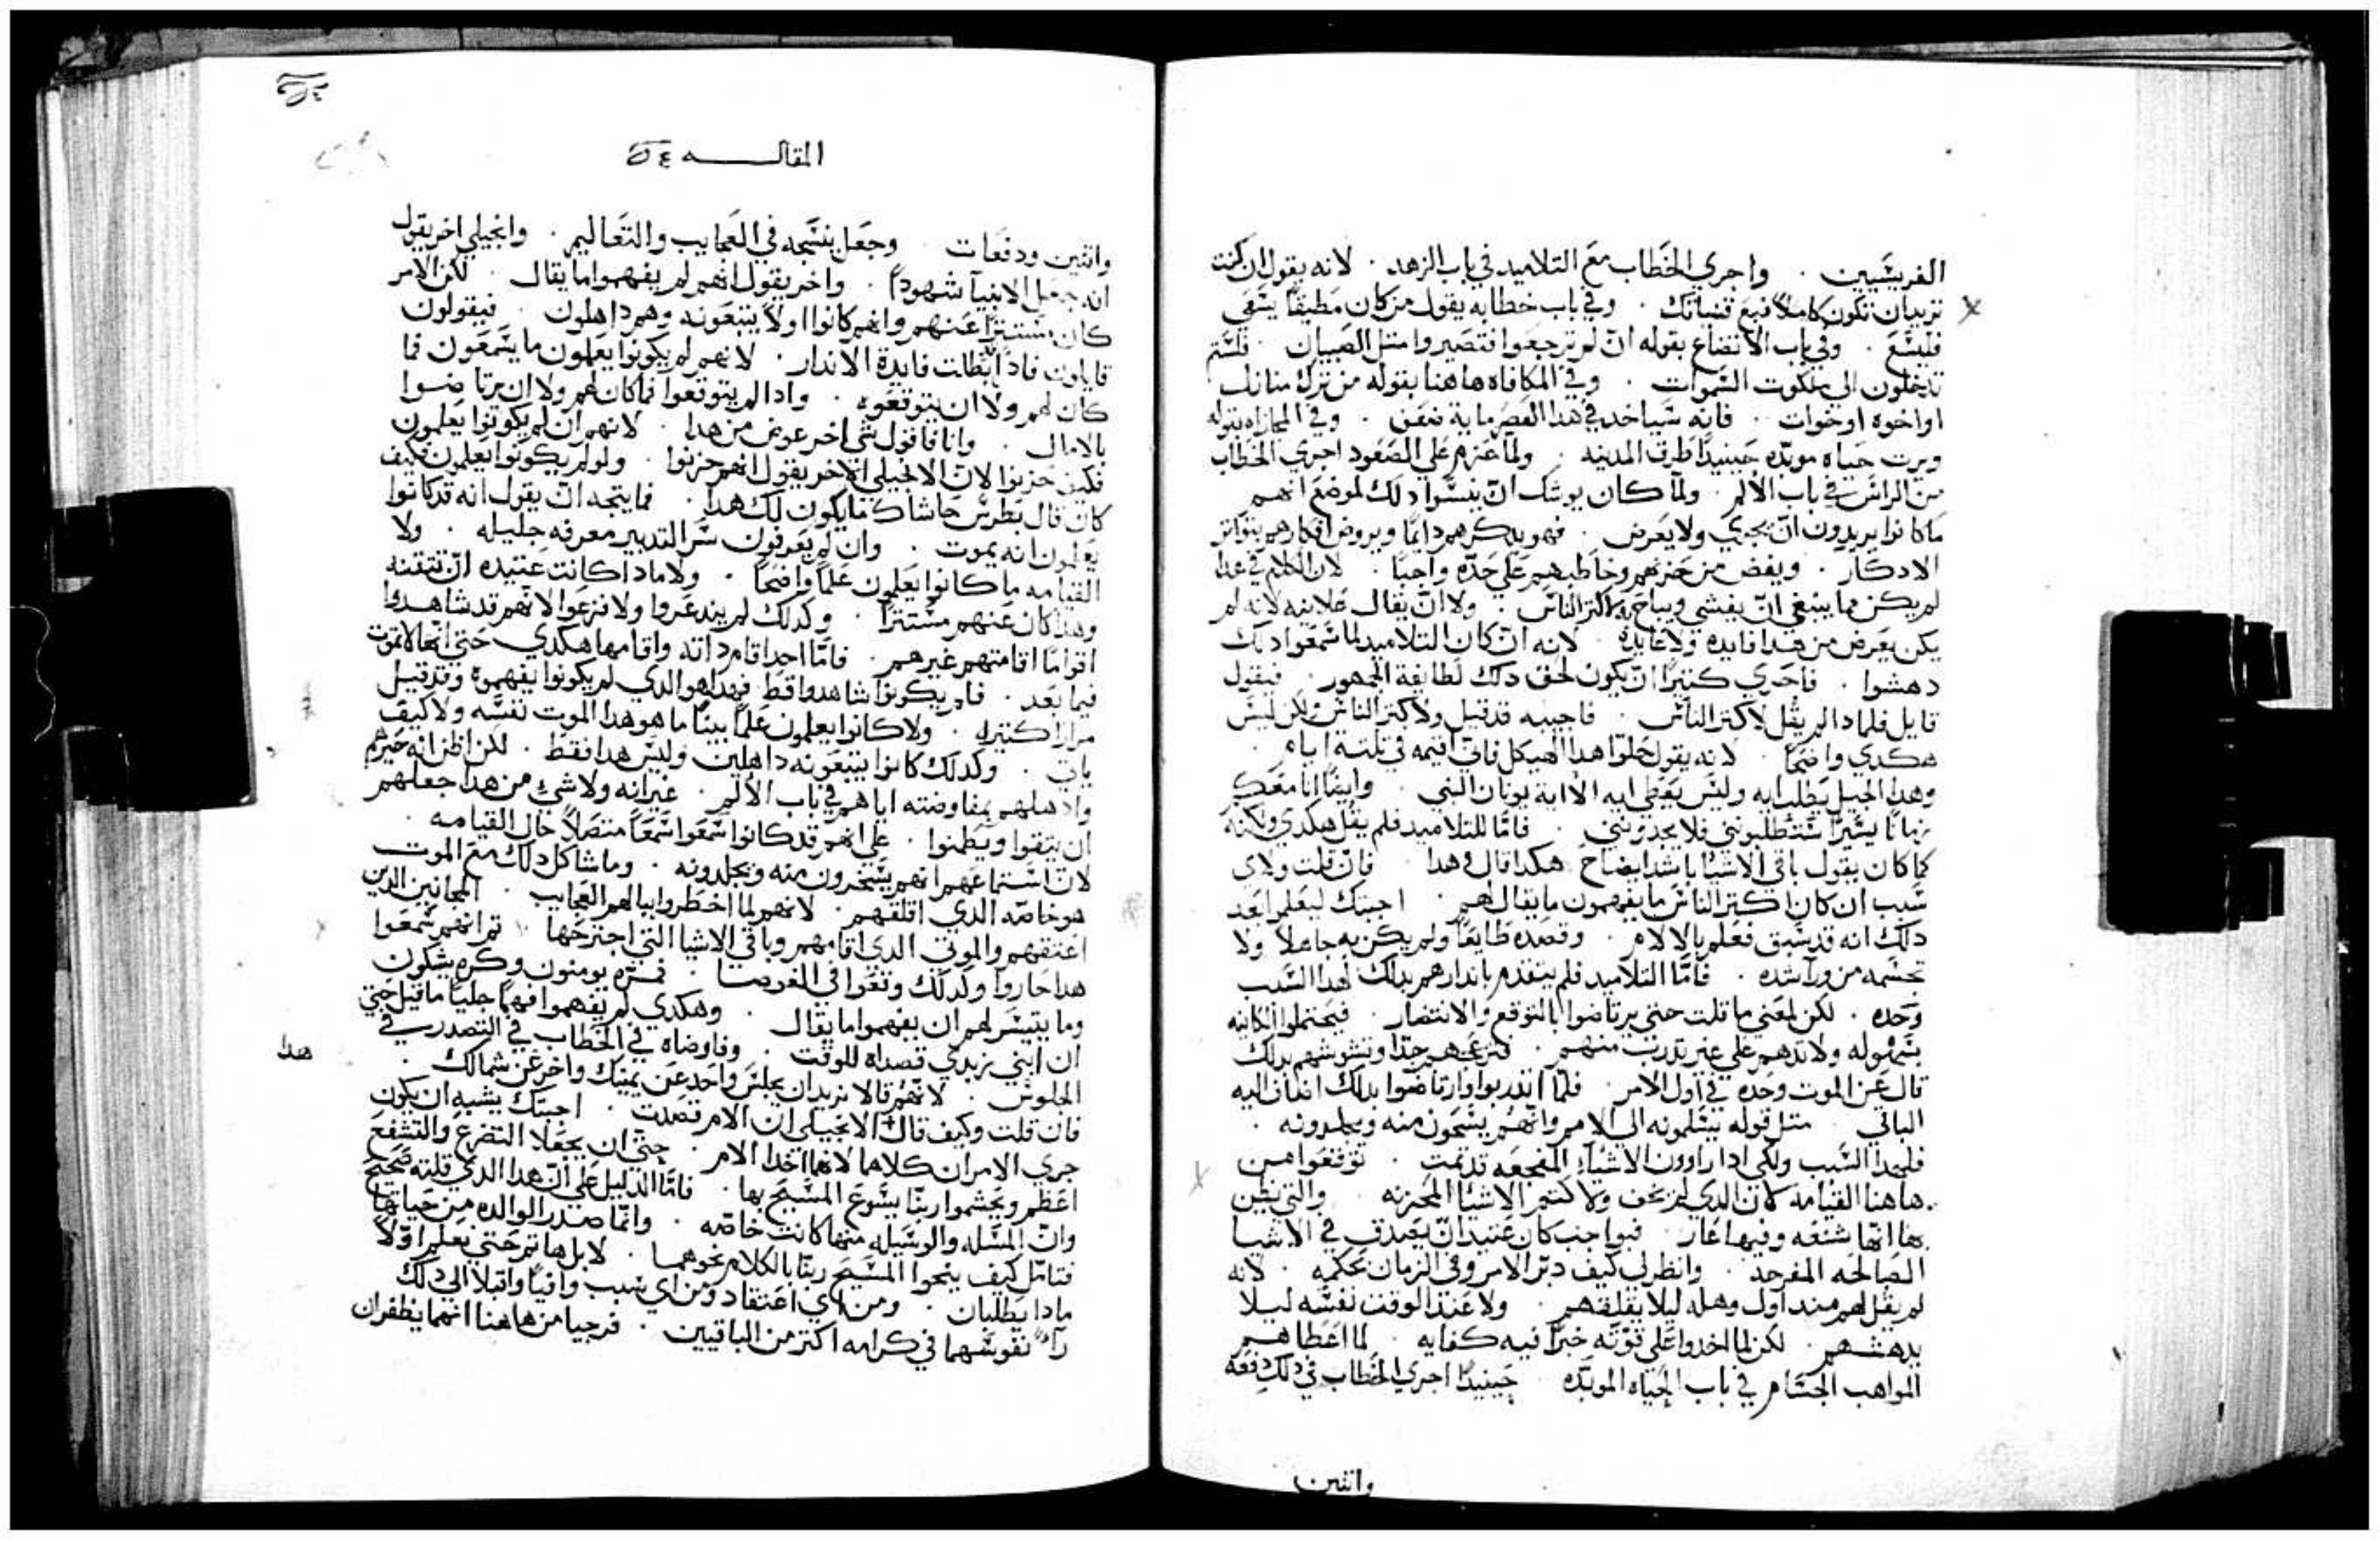 الفريسيين . واجري الخطاب مع التلاميد في باب الزهد . لانه يقول ان كنت
تريد ان تكون كاملاً فبع قنياتك . وفي باب خطابه يقول من كان مطيقاً يسعى
فليسع . وفي باب الاتضاع بقوله ان لم ترجعوا فتصيروا متل الصبيان . فلستم
تدخلون الى ملكوت السموات . وفي المكافاه هاهنا بقوله من ترك منازل
او اخوه او خوات . فانه سياخد في هدا العصر ماية ضعف . وفي المجازاه بقوله
ويرت حياه موبده حينيدٍ اطرق المدينه . ولما عزم على الصعود اجري الخطاب
من الراس في باب الألم . ولما كان يوشك ان ينسوا دلك لموضع انهم
ما كانوا يريدون ان يجري ولا يعرض . فهو يدكرهم دايمًا ويروض افكارهم بتواتر
الادكار . ويفض من حزنهم وخاطبهم على حدّه واجبًا . لان الكلام في هدا
لم يكن مما ينبغي ان يفشي ويباح به اكتر الناس . ولا ان يقال علانيه لانه لم
يكن يعرض من هدا فايده ولا عايده . لانه ان كان التلاميد لما سمعوا دلك
دهشوا . فاحري كتيرًا ان يكون لحق دلك لطايفة الجمهور . فيقول
قايل فلمادا لم يقل لاكتر الناس . فاجيبه قد قيل ولاكتر الناس ولكن ليس
هكدي واضحًا . لانه يقول حلوا هدا الهيكل فاني اقيمه في تلتة ايام .
وهدا الجيل يطلب ايه وليس يعطي ايه الا اية يونان النبي . وايضًا انا معكم
زمانًا يسيرًا ستطلبوني فلا تجدونني . فامّا للتلاميد فلم يقل هكدي ولكنه
كما كان يقول باقي الاشيا باشد ايضاح هكدا قال في هدا . فان قلت ولاي
سبب ان كان اكتر الناس ما يفهمون ما يقال لهم . اجبتك ليعلموا بعد
دلك انه قد سبق فعلم بالالام . وقصده طايعًا ولم يكن به جاهلاً ولا
تجشمه من ورآ شده . فامّا التلاميد فلم يتقدم باندارهم بدلك لهدا السبب
وحده . لكن لمعنى ما قلت حتى يرتاضوا بالتوقع والانتضار . فيحتملوا الكاينه
بسهوله ولا تدهم على غير تدرب منهم . فتزعجهم جدًا وتشوشهم بدلك
قال عن الموت وحده في اول الامر . فلمّا اتدربوا وارتاضوا بدلك اضاف اليه
الباقي . متل قوله يسلمونه الى الامم وانهم يسخرون منه ويجلدونه .
فلهدا السبب ولكي ادا راوا ان الاشيا المفجعه قد تمت . توقعوا من
هاهنا القيامه لان الدي لم يخف ولا كتم الاشيا المحزنه . والتي يظن
بها انها شنعه وفيها عار . فبواجب كان عتيدان يصدق في الاشيا
الصالحه المفرحه . وانظر لي كيف دبّر الامر وفي الزمان بحكمه . لانه
لم يقل لهم مند اول وهله ليلا يقلقهم . ولا عند الوقت نفسه ليلا
يدهشهم . لكن لما اخدوا على قوّته خبرًا فيه كفايه . لما اعطاهم
المواهب الجسام في باب الحياه الموبده . حينيدٍ اجري الخطاب في دلك دفعه
واتنين
المقالـــه
واتنين ودفعات . وجعل ينسجه في العجايب والتعاليم . وانجيلي اخر يقول
انه جعل الانبيآ شهودًا . واخر يقول انهم لم يفهموا ما يقال . لكن الامر
كان مستترًا عنهم وانهم كانوا اولاً يتبعونه وهم داهلون . فيقولون
قايلون فادًا ابطلت فايدة الاندار . لانهم لم يكونوا يعلمون ما يسمعون فما
كان لهم ولا ان يتوقعوه . وادا لم يتوقعوا فما كان لهم ولا ان يرتاضوا
بالامال . وانا فاقول شي اخر عوض من هدا . لانهم ان لم يكونوا يعلمون
فكيف حزنوا لان الانجيلي الاخر يقول انهم حزنوا . ولو لم يكونوا يعلمون فكيف
كان قال بطرس حاشاك ما يكون لك هدا . فما يتجه ان يقول انه قد كانوا
يعلمون انه يموت . وان لم يعرفون سر التدبير معرفه جليله . ولا
القيامه ما كانوا يعلمون علمًا واضحًا . ولا مادا كانت عتيده ان تتقنه
وهدا كان عنهم مستترًا . وكدلك لم يندعروا ولا فزعوا لانهم قد شاهدوا
اقوامًا اقامتهم غيرهم . فامّا احدًا قام داته واقامها هكدي حتى انها لا تموت
فيما بعد . فلم يكونوا شاهدوا قط فهدا هو الدي لم يكونوا يفهموه وقد قيل
مرارًا كتيره . ولا كانوا يعلمون علمًا بينًا ما هو هدا الموت نفسه ولا كيف
ياتي . وكدلك كانوا يتبعونه داهلين وليس هدا فقط . لكن اظن انه حيرهم
وادهلهم بمفاوضته اياهم في باب الألم . غير انه ولا شي من هدا جعلهم
ان يتقوا ويطمنوا . على انهم قد كانوا سمعوا سمعًا متصلاً حال القيامه .
لان استماعهم انهم يسخرون منه ويجلدونه . وما شاكل دلك مع الموت
هو خاصه الدي اقلقهم . لانهم لما اخطروا ببالهم العجايب . المجانين الدين
اعتقهم والموتي الدي اقامهم وباقي الاشيا التي اجترحها . تم انهم سمعوا
هدا حاروا وكدلك وقعوا في
وما يتيسر لهم ان يفهموا ما يقال . وهكدي لم يفهموا فهمًا جليًا ما قيل حتى
ان ابني زبدي قصداه للوقت . وفاوضاه في الخطاب في التصدر في
هدا
الجلوس . لانهم قالا نريد ان يجلس واحد عن يمينك واخر عن شمالك .
فان قلت وكيف قال الانجيلي ان الام قصدت . اجبتك يشبه ان يكون
جري الامران كلاهما لانهما اخدا الام . حتى ان يجعلا التضرع والتشفع
اعظم ويجشموا ربنا يسوع المسيح بها . فامّا الدليل على ان هدا الدي قلته صحيح
وان المسله والوسيله منها كانت خاصه . وانما صدر الوالده من حيايها
فتامّل كيف ينحوا المسيح ربنا بالكلام نحوهما . لا بل هاتم حتى نعلم اوّلاً
مادا يطلبان . ومن اي اعتقاد ومن اي سبب وافيا واقبلا الى دلك
رآ نفوسهما في كرامه اكتر من الباقيين . فرجيا من هاهنا انهما يظفران